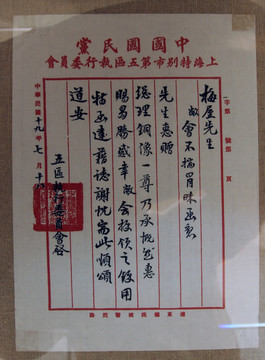 中國國民黨
上海特別市第五區執行委員會
字第 號第 頁
梅屋先生
敝會不揣冒昧函懇
先生惠贈
總理銅像一尊乃承慨然惠
賜曷勝感幸敝會拜領之餘用
特函達藉誌謝忱耑此順頌
道安
五區執行委員會啓
中華民國十九年七月十